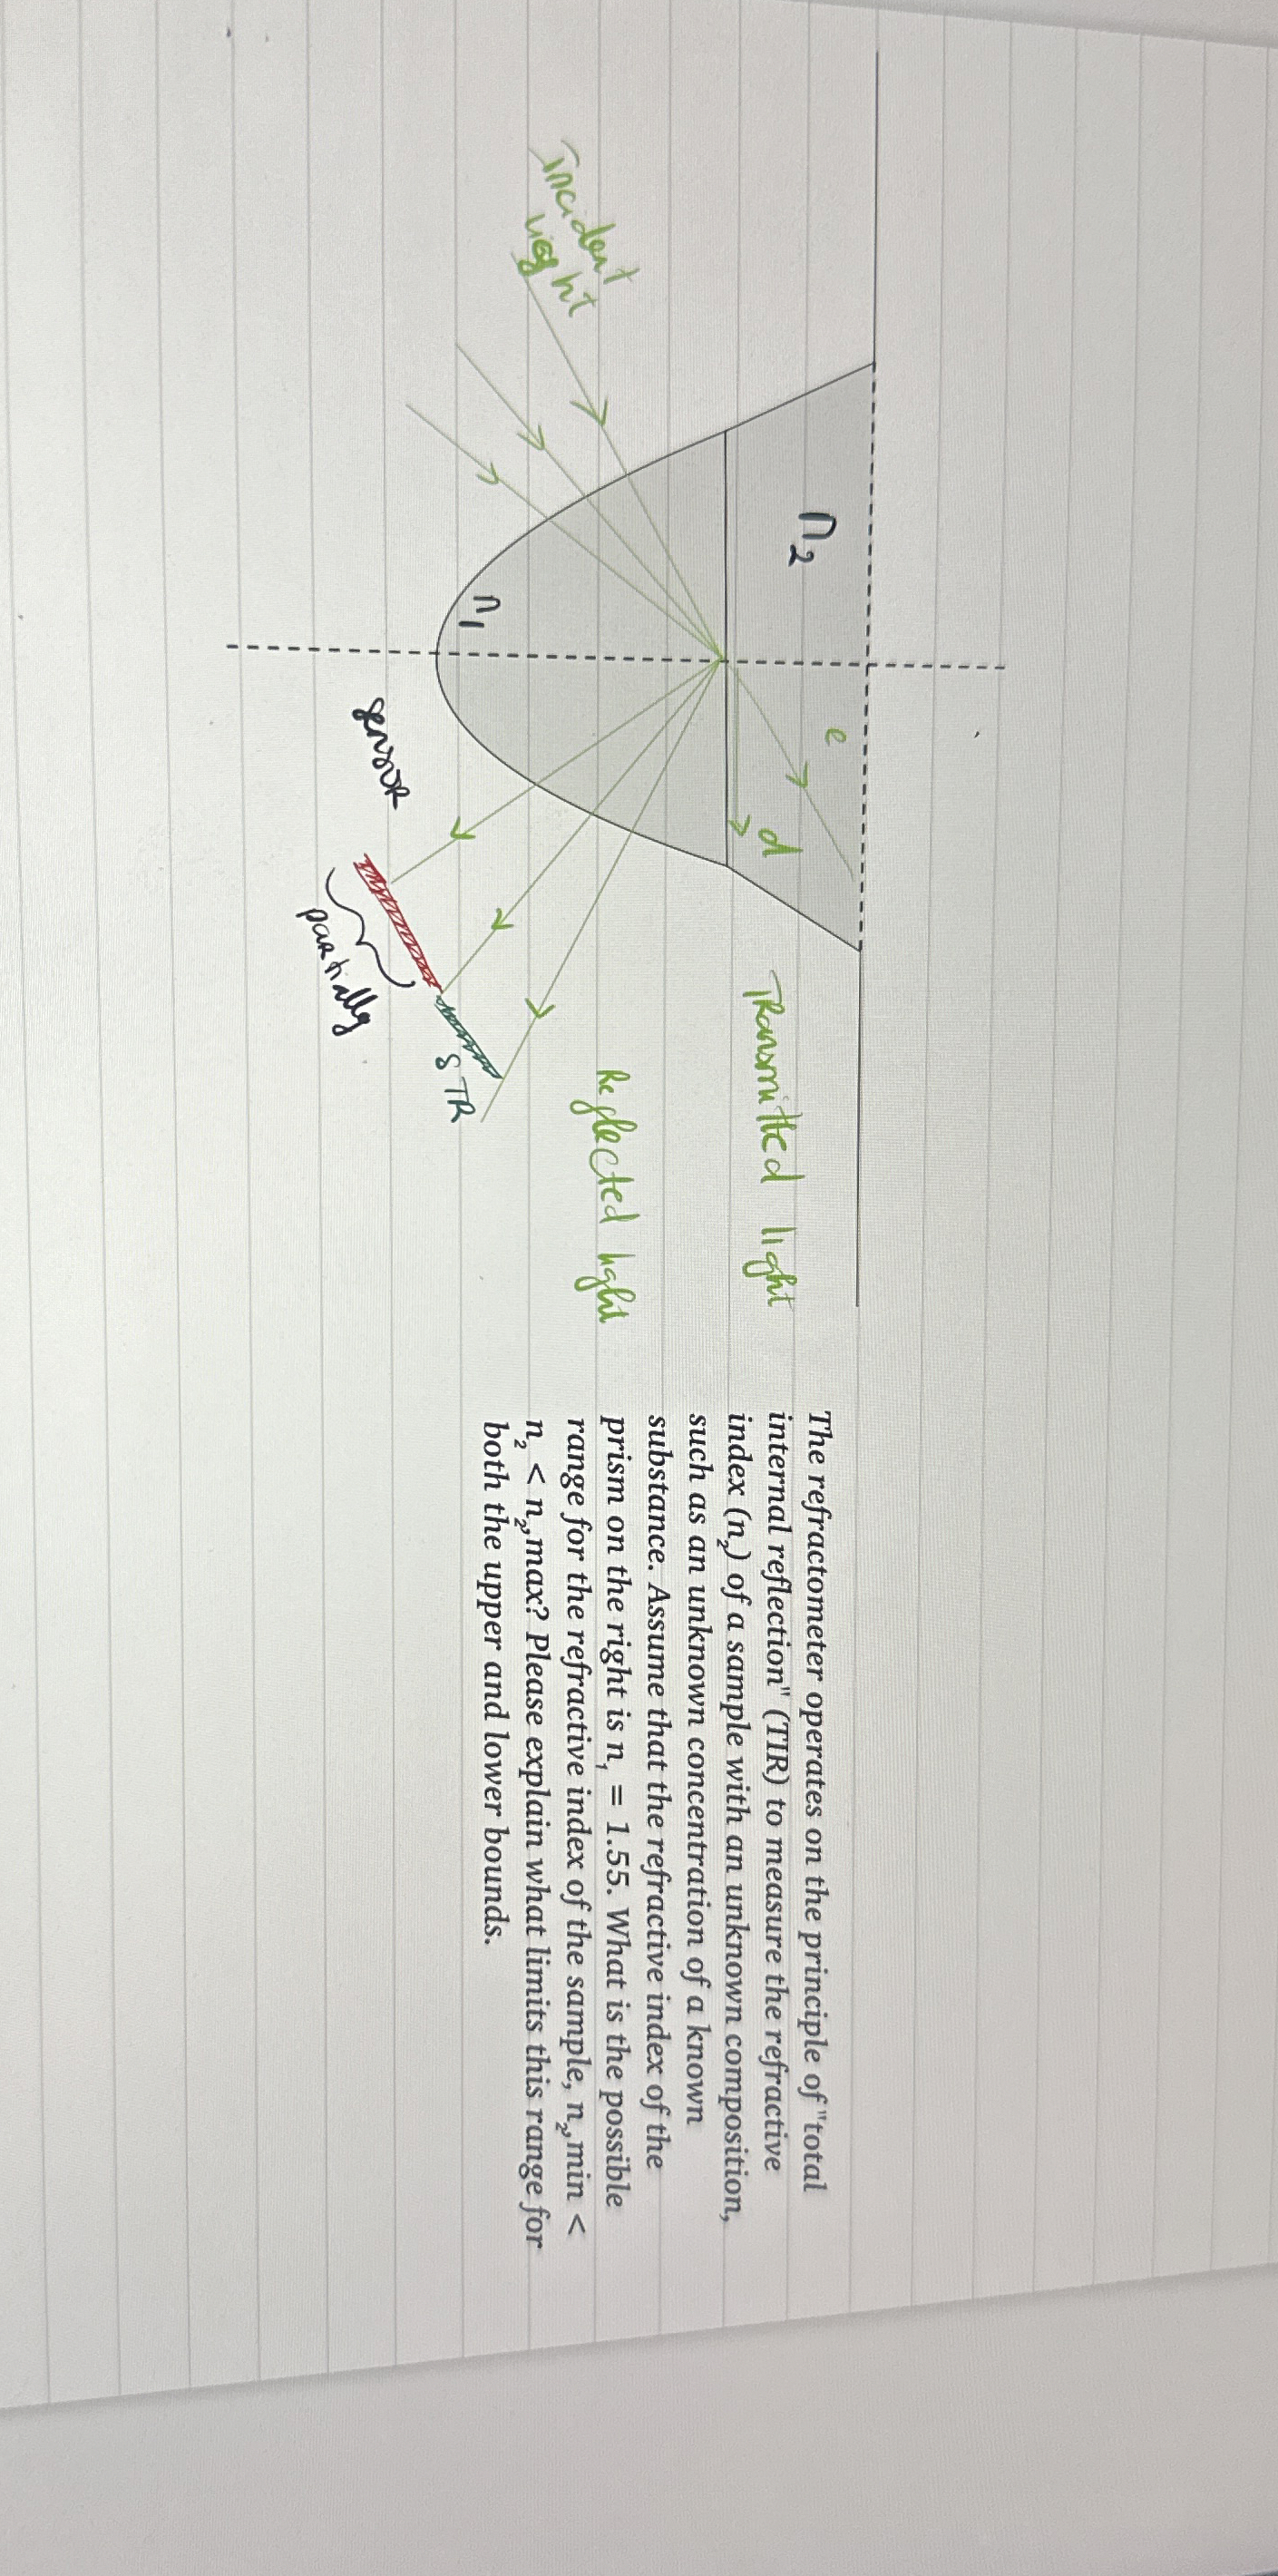 Incident
light
n₂
n₁
e
d
sensor
partially
STR
Transmitted light
Reflected light
The refractometer operates on the principle of "total
internal reflection" (TIR) to measure the refractive
index (n₂) of a sample with an unknown composition,
such as an unknown concentration of a known
substance. Assume that the refractive index of the
prism on the right is n₁ = 1.55. What is the possible
range for the refractive index of the sample, n₂,min <
n₂ < n₂,max? Please explain what limits this range for
both the upper and lower bounds.